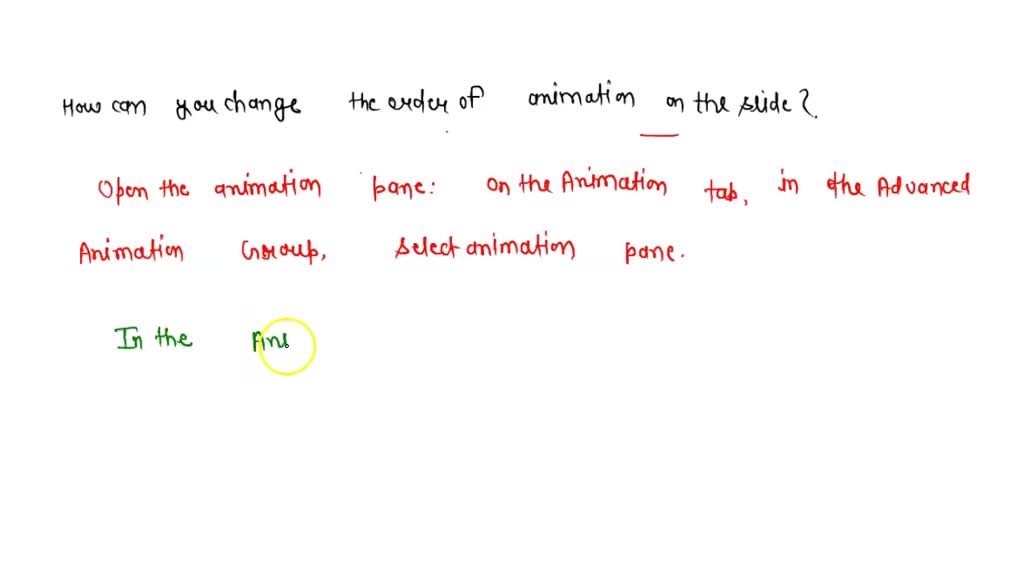 How can you change the order of animation on the slide?
Open the animation pane: on the Animation tab, in the Advanced
Animation Group, select animation pane.
In the